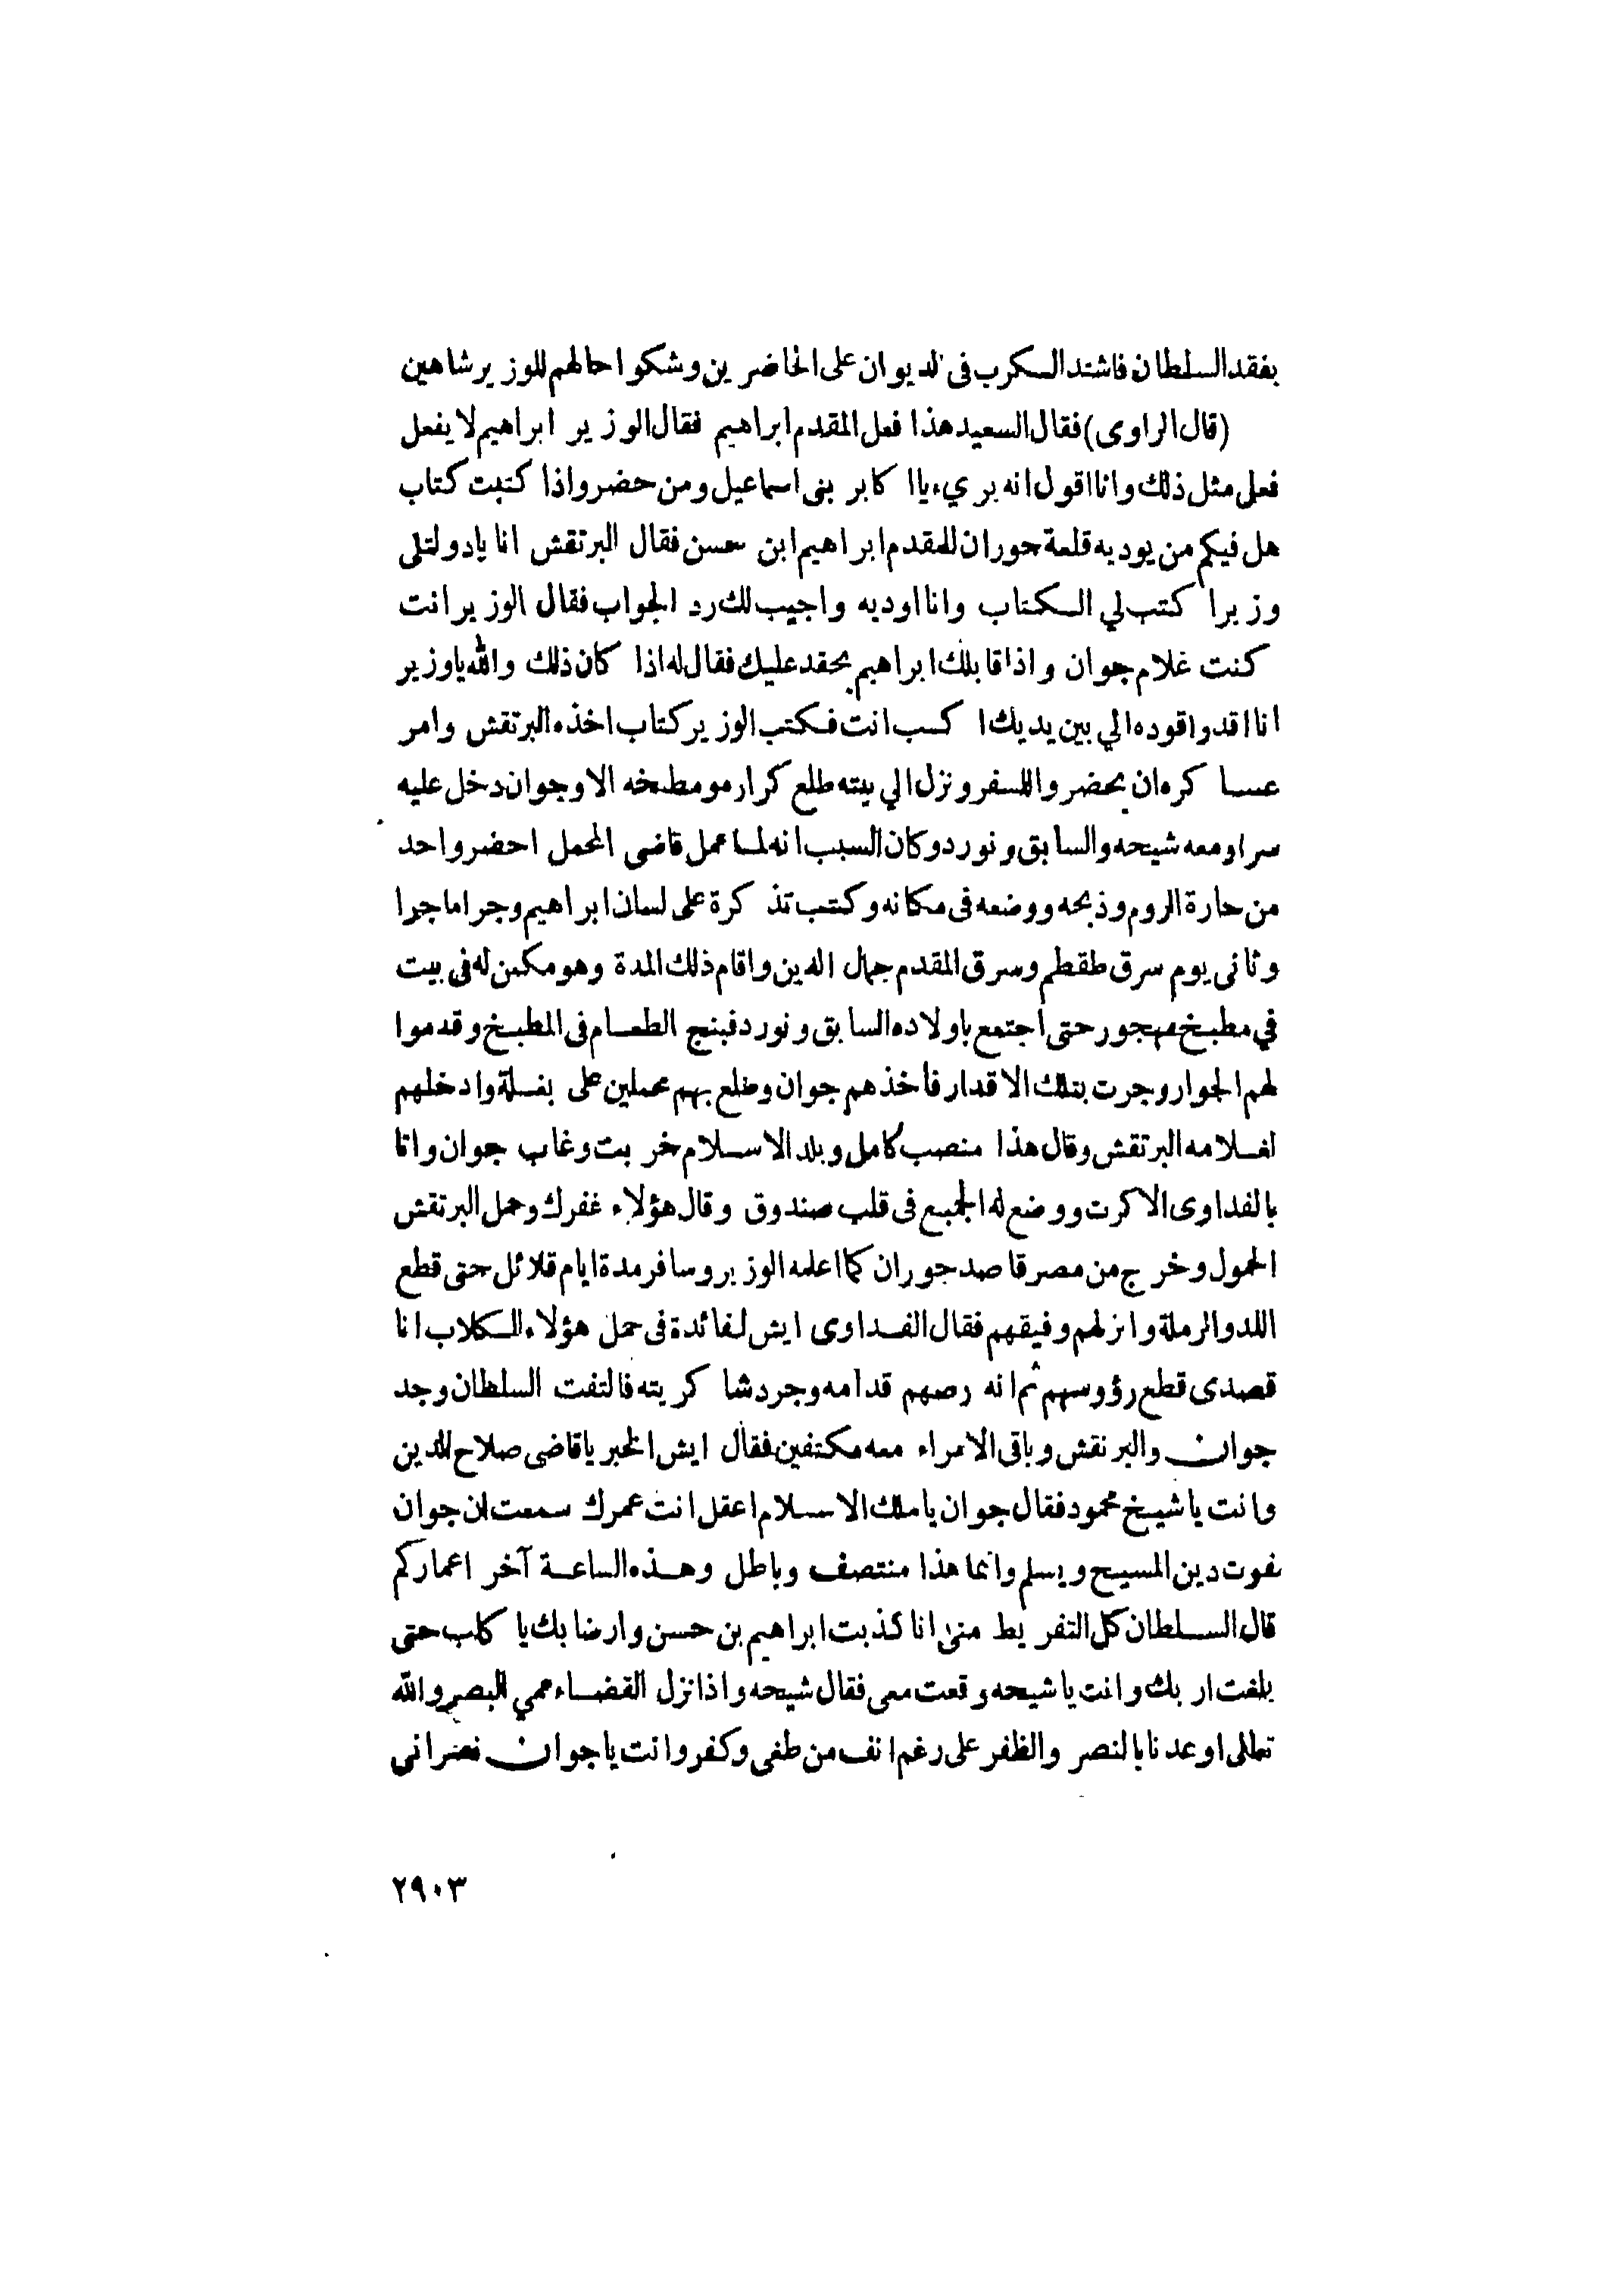 بفقد السلطان فاشتد الكرب فى الديوان على الحاضرين وشكوا حالهم للوزير شاهين
(قال الراوى) فقال السعيد هذا فعل المقدم ابراهيم فقال الوزير ابراهيم لا يفعل
فعل مثل ذلك وانا اقول انه بريء يا اكابر بنى اسماعيل ومن حضر واذا كتبت كتاب
هل فيكم من يوديه قلعة حوران للمقدم ابراهيم ابن حسن فقال البرتقش انا يادولتلى
وزير اكتب لي الكتاب وانا اوديه واجيب لك رد الجواب فقال الوزير انت
كنت غلام جوان واذا قابلك ابراهيم يحقد عليك فقال له اذا كان ذلك والله ياوزير
انا اقد واقوده الي بين يديك اكسب انت فكتب الوزير كتاب اخذه البرتقش وامر
عساكره ان يحضروا للسفر ونزل الي بيته طلع كراره ومطبخه الا وجوان دخل عليه
سرا ومعه شيحه والسابق ونورد وكان السبب انه لما عمل قاضى المحمل احضر واحد
من حارة الروم وذبحه ووضعه فى مكانه وكتب تذكرة على لسان ابراهيم وجرا ماجرا
وثانى يوم سرق طقطم وسرق المقدم جمال الدين واقام ذلك المدة وهو مكمن له فى بيت
في مطبخ مهجور حتى اجتمع باولاده السابق ونورد فبنج الطعام فى المطبخ وقدموا
لهم الجوار وجرت بتلك الاقدار فأخذهم جوان وطلع بهم محملين على بغلة وادخلهم
لغلامه البرتقش وقال هذا منصب كامل وبلد الاسلام خربت وغاب جوان واتا
بالفداوى الاكرت ووضع له الجميع فى قلب صندوق وقال هؤلاء غفرك وحمل البرتقش
الحمول وخرج من مصر قاصد حوران كما اعلمه الوزير وسافر مدة ايام قلائل حتى قطع
اللد والرملة وانزلهم وفيقهم فقال الفداوى ايش لفائدة فى حمل هؤلاء الكلاب انا
قصدى قطع رؤوسهم ثم انه رصهم قدامه وجرد شاكريته فالتفت السلطان وجد
جوان والبرنقش وباقى الامراء معه مكتفين فقال ايش الخبر ياقاضى صلاح الدين
وانت ياشيخ محمود فقال جوان ياملك الاسلام اعقل انت عمرك سمعت ان جوان
يفوت دين المسيح ويسلم وانما هذا منتصف وباطل وهذه الساعة آخر اعماركم
قال السلطان كل التفريط منى انا كذبت ابراهيم بن حسن وارضا بك يا كلب حتى
بلغت اربك وانت ياشيحه وقعت معى فقال شيحه واذا نزل القضاء عمي البصر والله
تعالى اوعدنا بالنصر والظفر على رغم انف من طغى وكفر وانت ياجوان نصرانى
٢٩٠٣